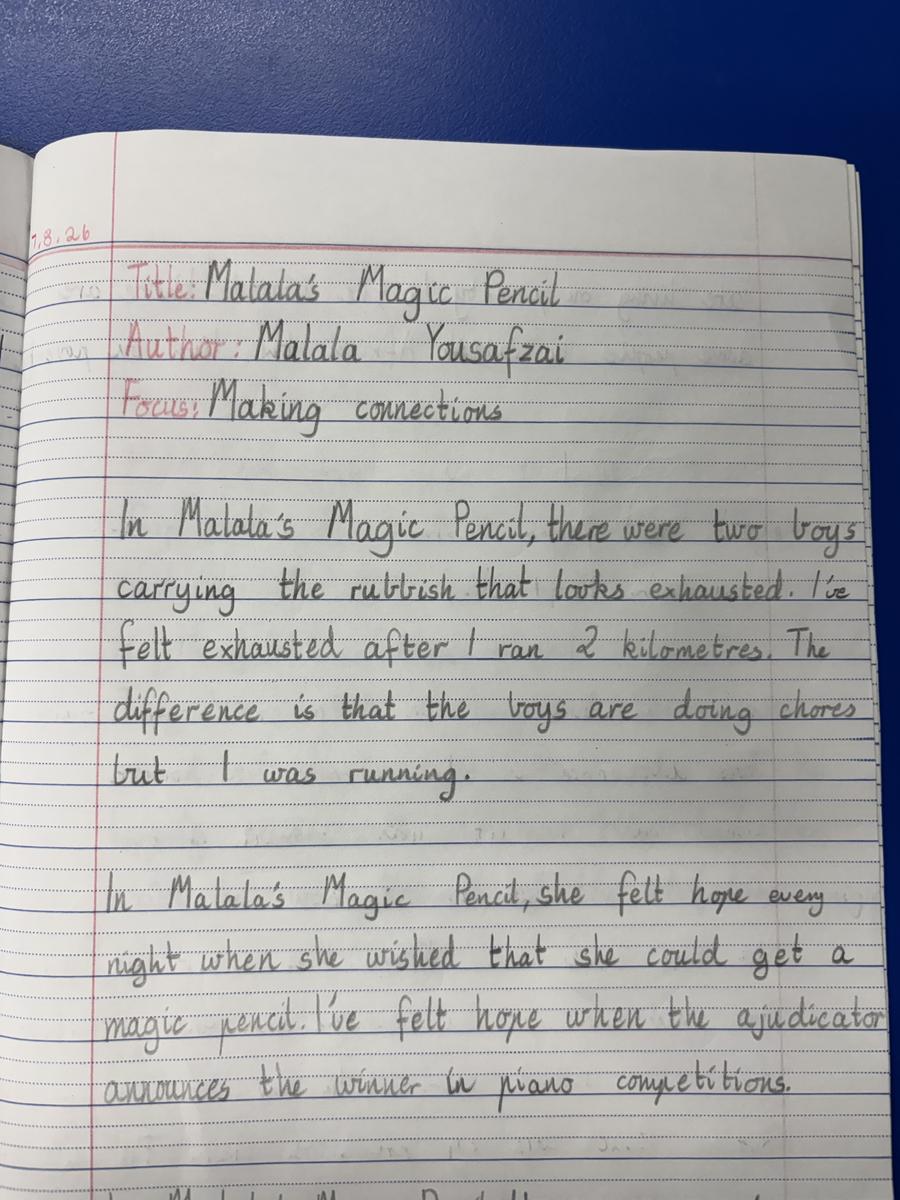 7.8.26
Title: Malala's Magic Pencil
Author: Malala Yousafzai
Focus: Making connections
In Malala's Magic Pencil, there were two boys
carrying the rubbish that looks exhausted. I've
felt exhausted after I ran 2 kilometres. The
difference is that the boys are doing chores
but I was running.
In Malala's Magic Pencil, she felt hope every
night when she wished that she could get a
magic pencil. I've felt hope when the ajudicator
announces the winner in piano competitions.